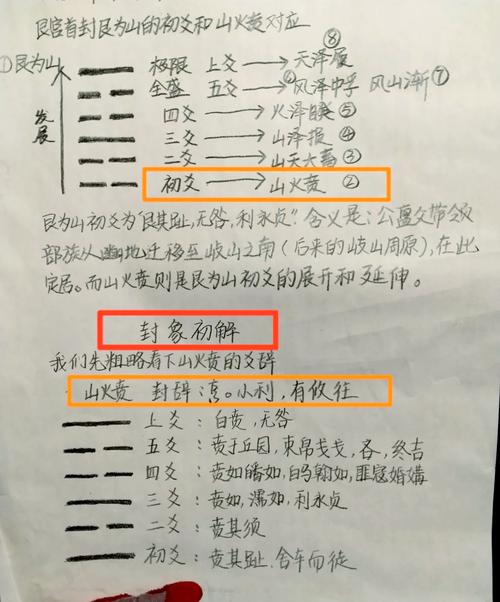 艮宫首封艮为山的初爻和山火贲对应
⑧
①艮为山 极限 上爻→天泽履
全盛 五爻→⑥风泽中孚 风山渐⑦
发展 四爻→火泽睽⑤
三爻→山泽损④
二爻→山天大畜③
初爻→山火贲②
艮为山初爻为"艮其趾,无咎,利永贞"。含义是:公亶父带领
部族从豳地迁移至岐山之南(后来的岐山周原),在此
定居。而山火贲则是艮为山初爻的展开和延伸。
封象初解
我们先粗略看下山火贲的爻辞
山火贲 封辞:亨。小利,有攸往
上爻:白贲,无咎
五爻:贲于丘园,束帛戋戋,吝,终吉
四爻:贲如皤如,白马翰如,匪寇婚媾
三爻:贲如,濡如,利永贞
二爻:贲其须
初爻:贲其趾.舍车而徒